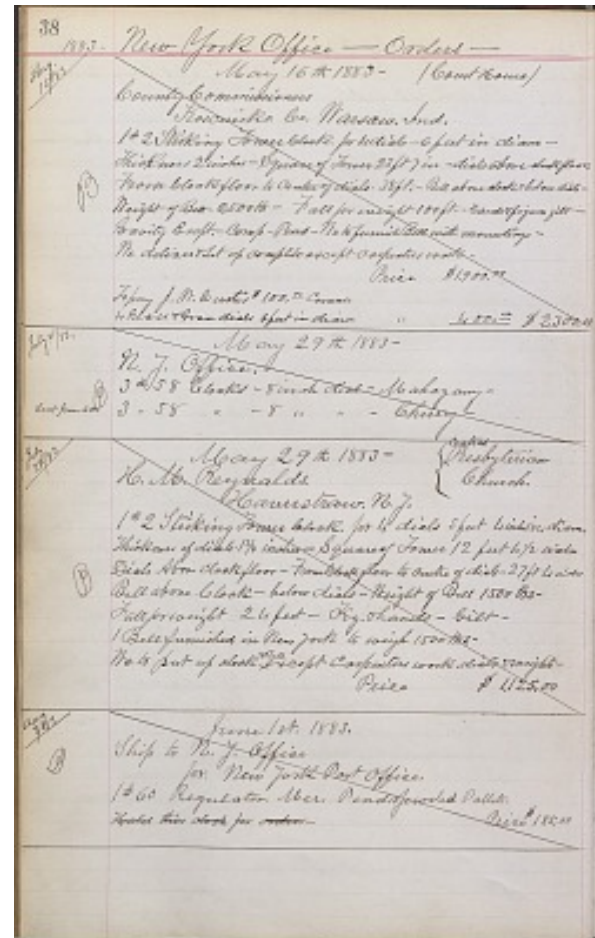 38
1883- New York Office — Orders —
May 16th 1883- (Court House)
County Commissioners
Kosciusko Co. Warsaw. Ind.
1 #2 Striking Tower Clock for 4 dials - 6 feet in diam -
Thickness 2 inches - Square of Tower 23 ft 7 in - dials above clock floor
From Clock floor to Centre of dials 38 ft. - Bell above clock & below dials -
Weight of Bell - Fall for weight 100 ft - hands & figures gilt -
Gravity Escpt. - Comp - Pend - No to furnish Bell with mountings -
We deliver & set up complete except carpenters work -
Price $1900.00
To pay J. W. $100.00
4 Glass dials 6 feet in diam " 400.00 $2300.00
May 29th 1883-
N. Y. Office.
3 #58 Clocks - 8 inch dial - Mahogany -
3 - 58 " - 8 " " - Cherry
May 29th 1883- Presbyterian
H. M. Reynolds Church.
Haverstraw. N. Y.
1 #2 Striking Tower Clock. for 4 dials 5 feet diam.
Thickness of dials inches Square of Tower 12 feet
Dials above clock floor - From Clock floor to centre of dials - 27 ft
Bell above Clock - below dials - Weight of Bell 1500 lbs -
Fall for weight 26 feet - Fig & hands - Gilt -
1 Bell furnished in New York to weigh 1500 lbs -
We to put up clock Except Carpenters work
Price $1,125.00
June 1st. 1883.
Ship to N. Y. Office
for New York Post Office.
1 #60 Regulator Mer. Pend Jeweled Pallets
this clock for Price $185.00